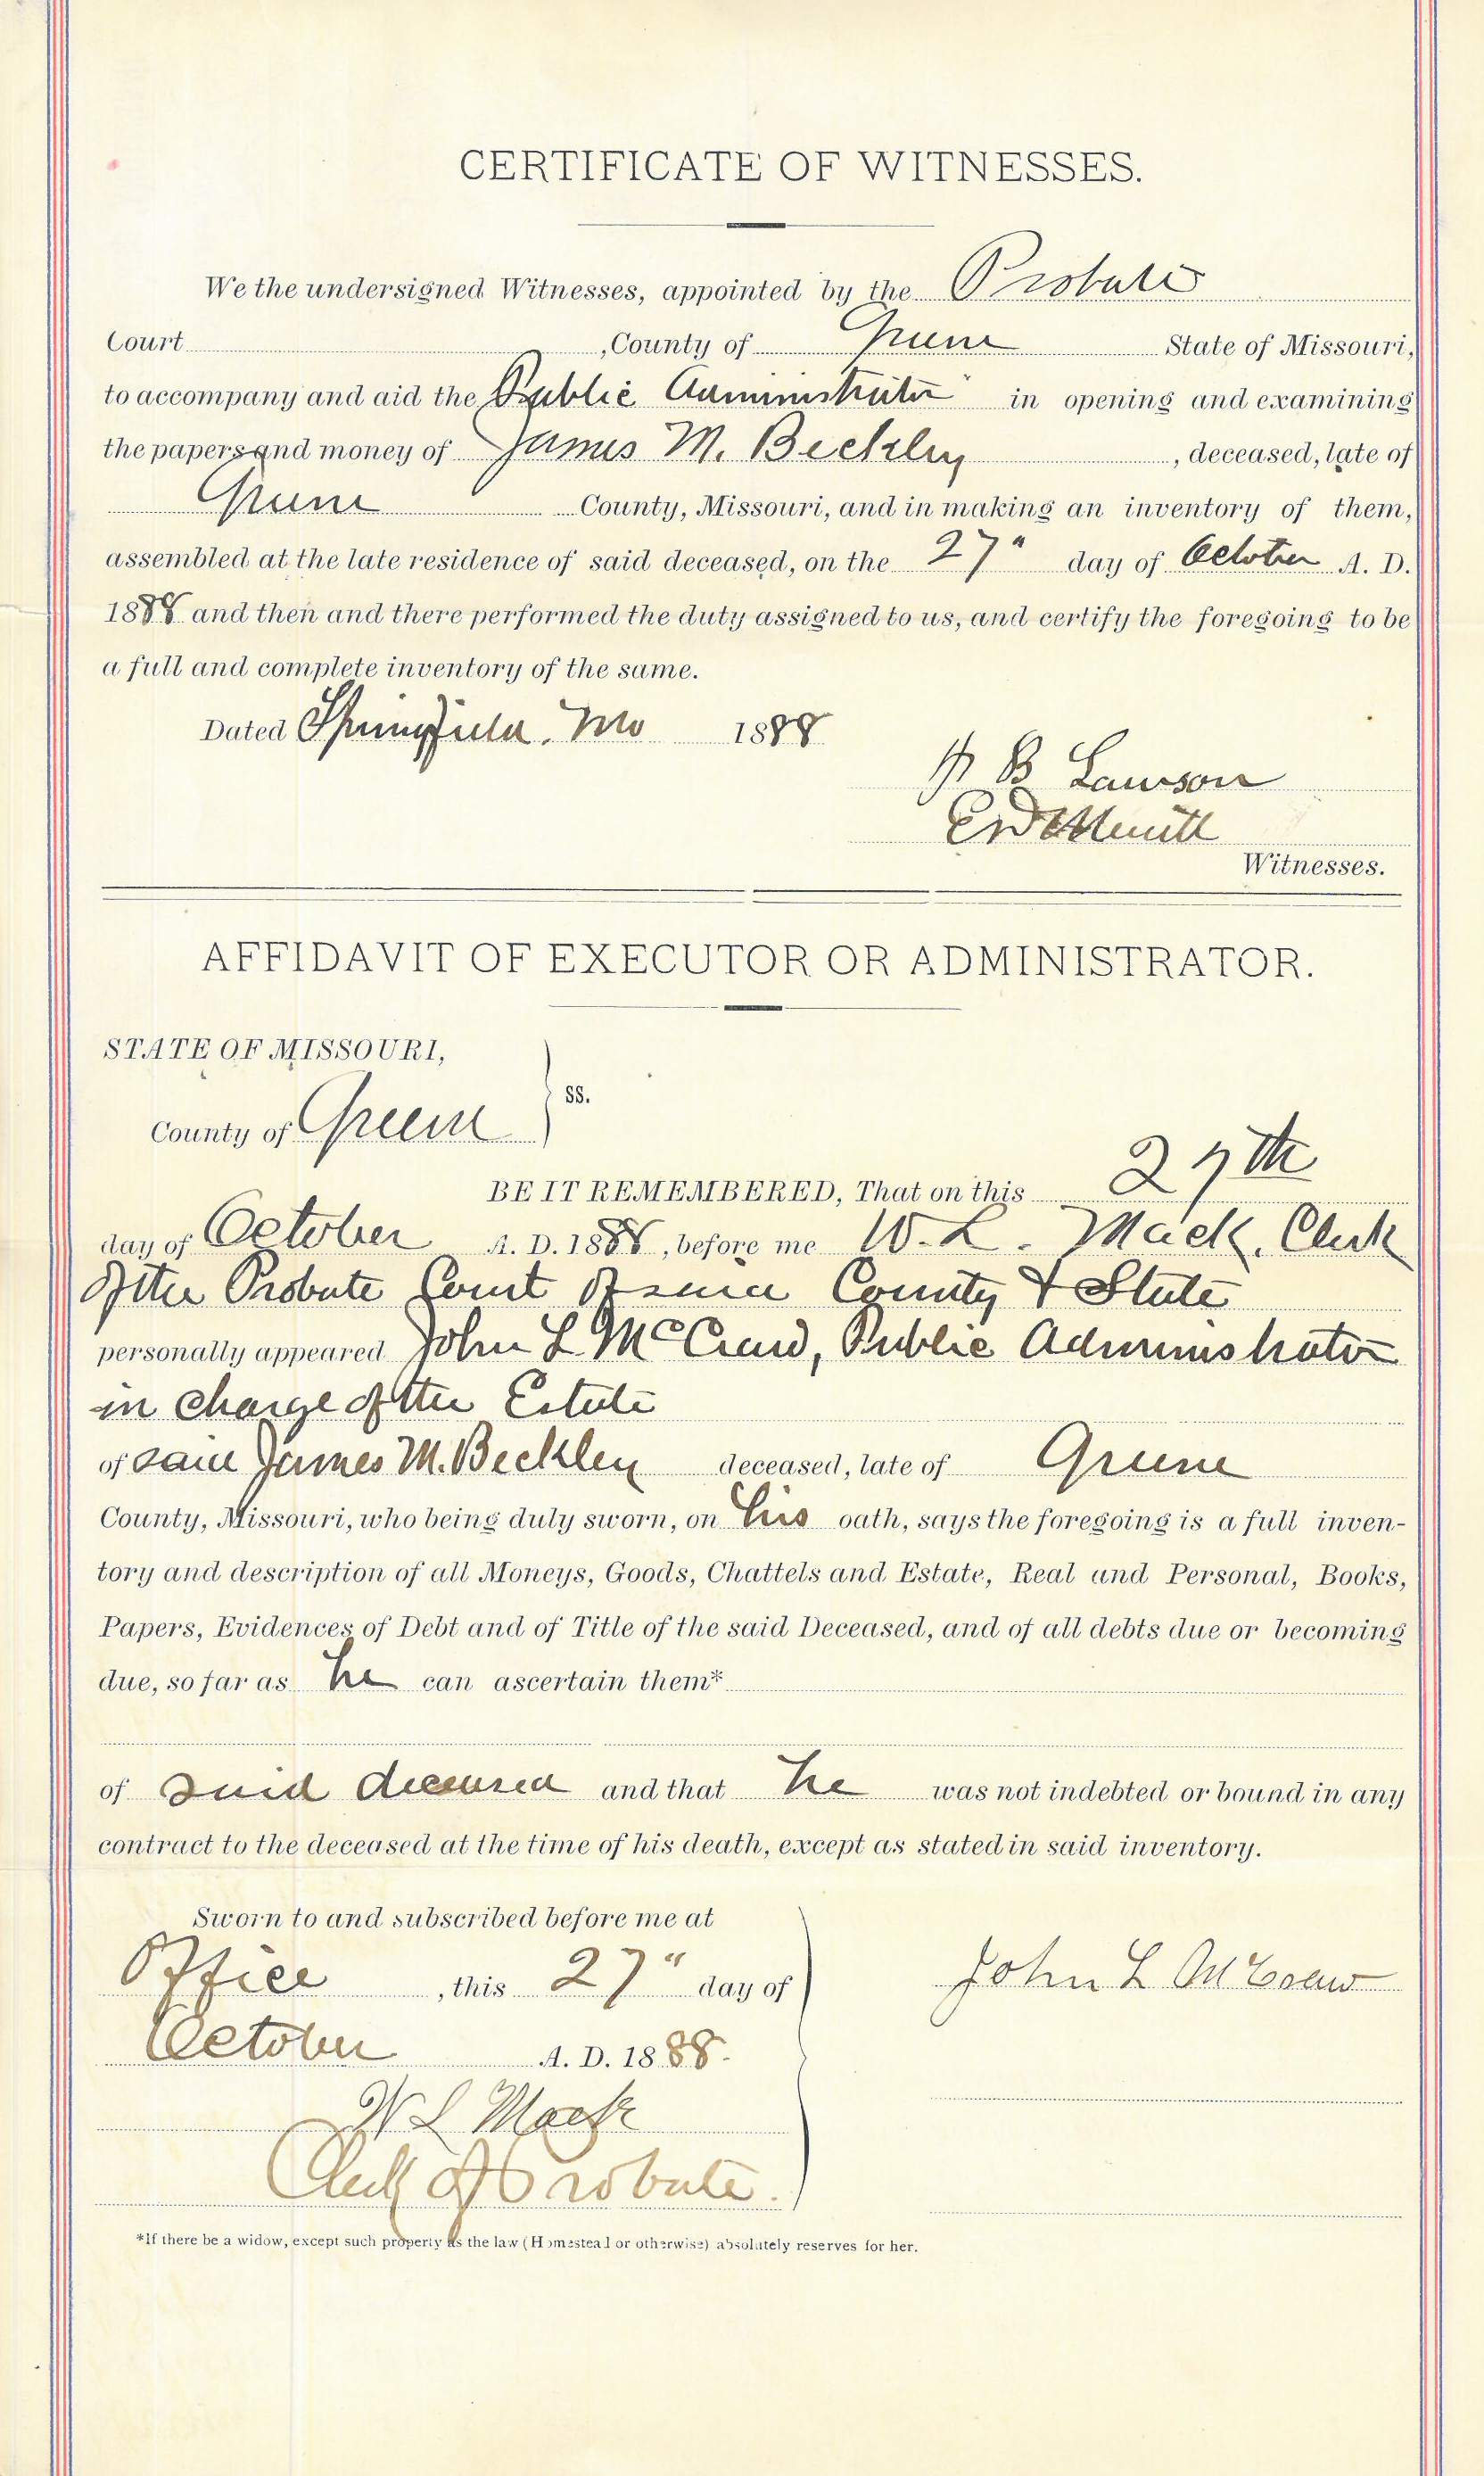 CERTIFICATE OF WITNESSES.
We the undersigned Witnesses, appointed by the Probate
Court , County of Greene State of Missouri,
to accompany and aid the Public Administrator in opening and examining
the papers and money of James M. Beckley , deceased, late of
Greene County, Missouri, and in making an inventory of them,
assembled at the late residence of said deceased, on the 27" day of October A. D.
1888 and then and there performed the duty assigned to us, and certify the foregoing to be
a full and complete inventory of the same.
Dated Springfield, Mo 1888
B Lawson
Witnesses.
AFFIDAVIT OF EXECUTOR OR ADMINISTRATOR.
STATE OF MISSOURI,
County of Greene ss.
BE IT REMEMBERED, That on this 27th
day of October A. D. 1888, before me W. L. Mack, Clerk
of the Probate Court of said County & State
personally appeared John L McCraw, Public Administrator
in charge of the Estate
of said James M. Beckley deceased, late of Greene
County, Missouri, who being duly sworn, on his oath, says the foregoing is a full inven-
tory and description of all Moneys, Goods, Chattels and Estate, Real and Personal, Books,
Papers, Evidences of Debt and of Title of the said Deceased, and of all debts due or becoming
due, so far as he can ascertain them*
of said deceased and that he was not indebted or bound in any
contract to the deceased at the time of his death, except as stated in said inventory.
Sworn to and subscribed before me at
Office , this 27" day of
John L McCraw
October A. D. 1888.
W L Mack
Clerk of Probate.
*If there be a widow, except such property as the law (Homestead or otherwise) absolutely reserves for her.